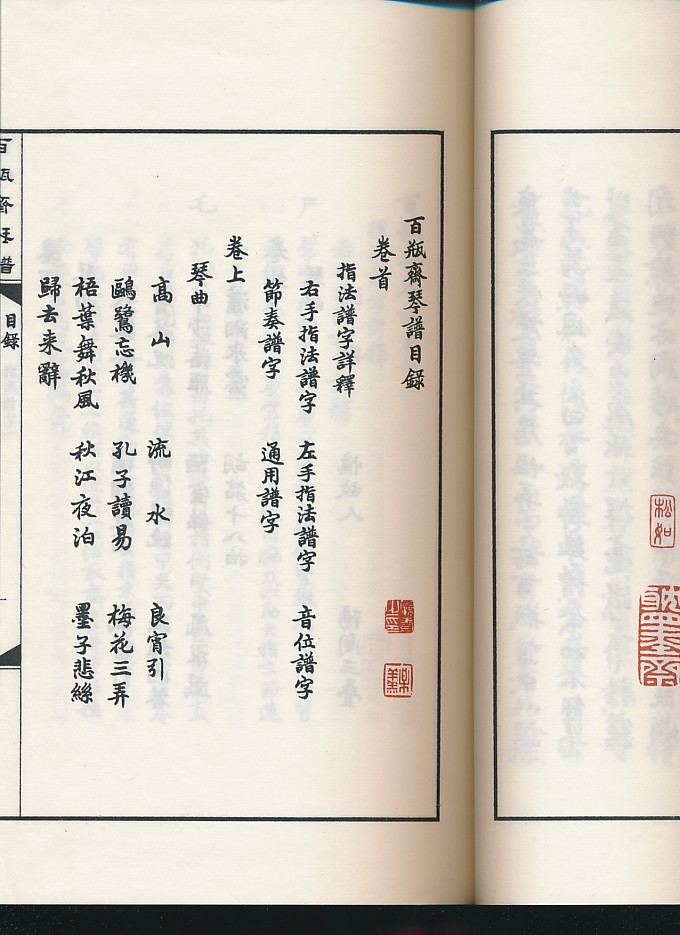 松如
百瓶齋琴譜目録
卷首
指法譜字詳釋
右手指法譜字 左手指法譜字 音位譜字
節奏譜字 通用譜字
卷上
琴曲
高山 流水 良宵引
鷗鷺忘機 孔子讀易 梅花三弄
梧葉舞秋風 秋江夜泊 墨子悲絲
歸去来辭
百瓶齋琴譜
目録